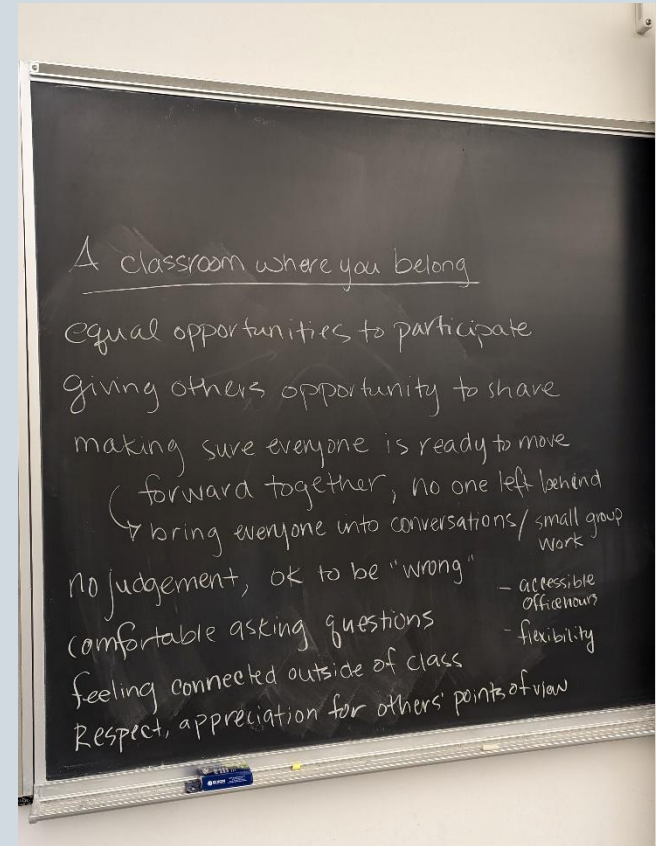 A classroom where you belong
equal opportunities to participate
giving others opportunity to share
making sure everyone is ready to move
forward together, no one left behind
bring everyone into conversations/ small group
work
no judgement, ok to be "wrong"
- accessible
office hours
comfortable asking questions
- flexibility
feeling connected outside of class
Respect, appreciation for others' points of view